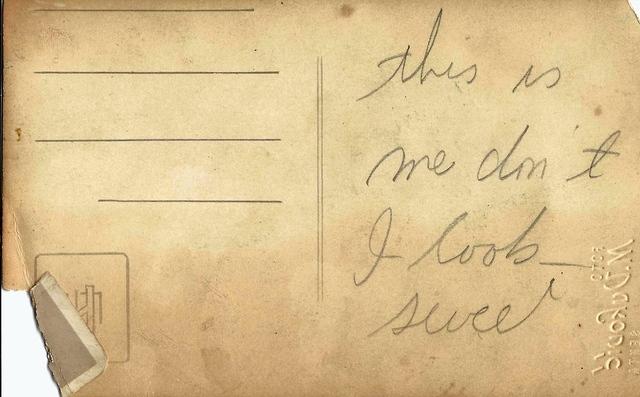 this is
me don't
I look
sweet